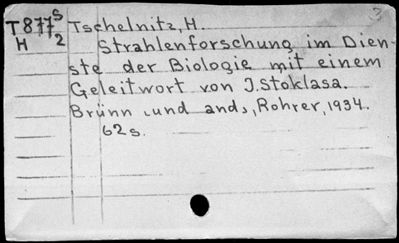 3
T877 S Tschelnitz, H.
H 2 Strahlenforschung im Dien-
ste der Biologie mit einem
Geleitwort von J. Stoklasa.
Brünn und and., Rohrer, 1934.
62 s.